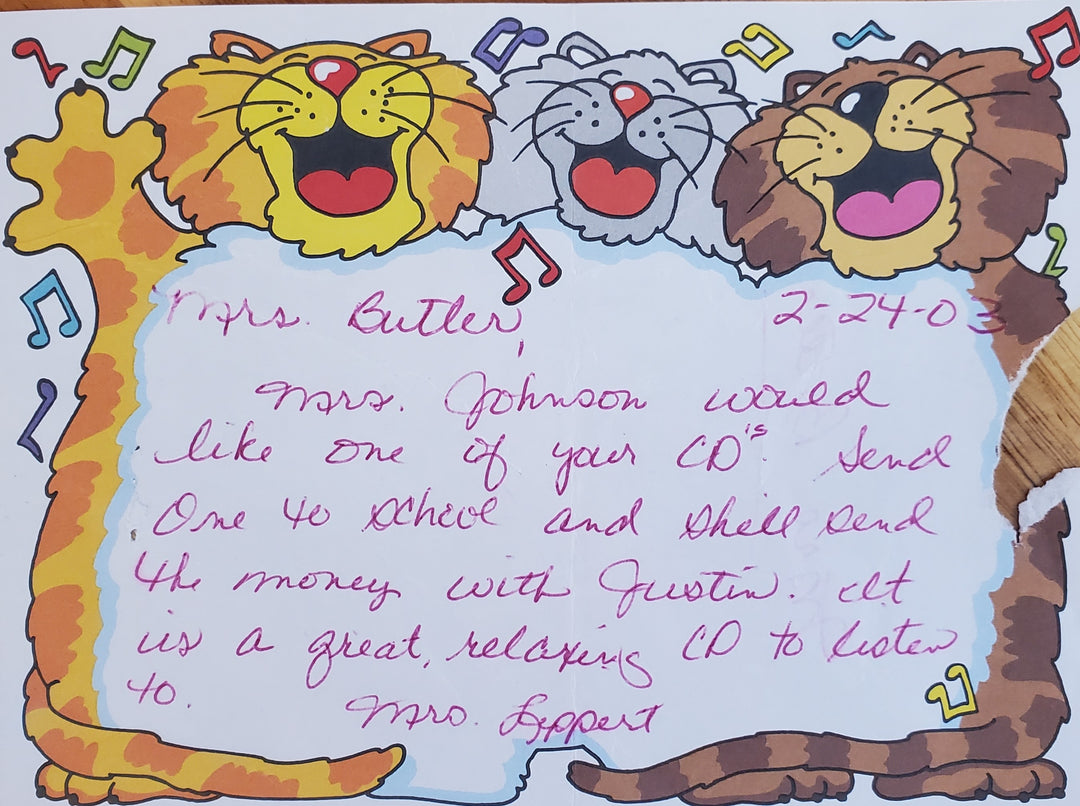 Mrs. Butler, 2-24-03
Mrs. Johnson would
like one of your CD's. Send
One to school and shell send
the money with Justin. It
is a great, relaxing CD to listen
to.
Mrs. Leppert